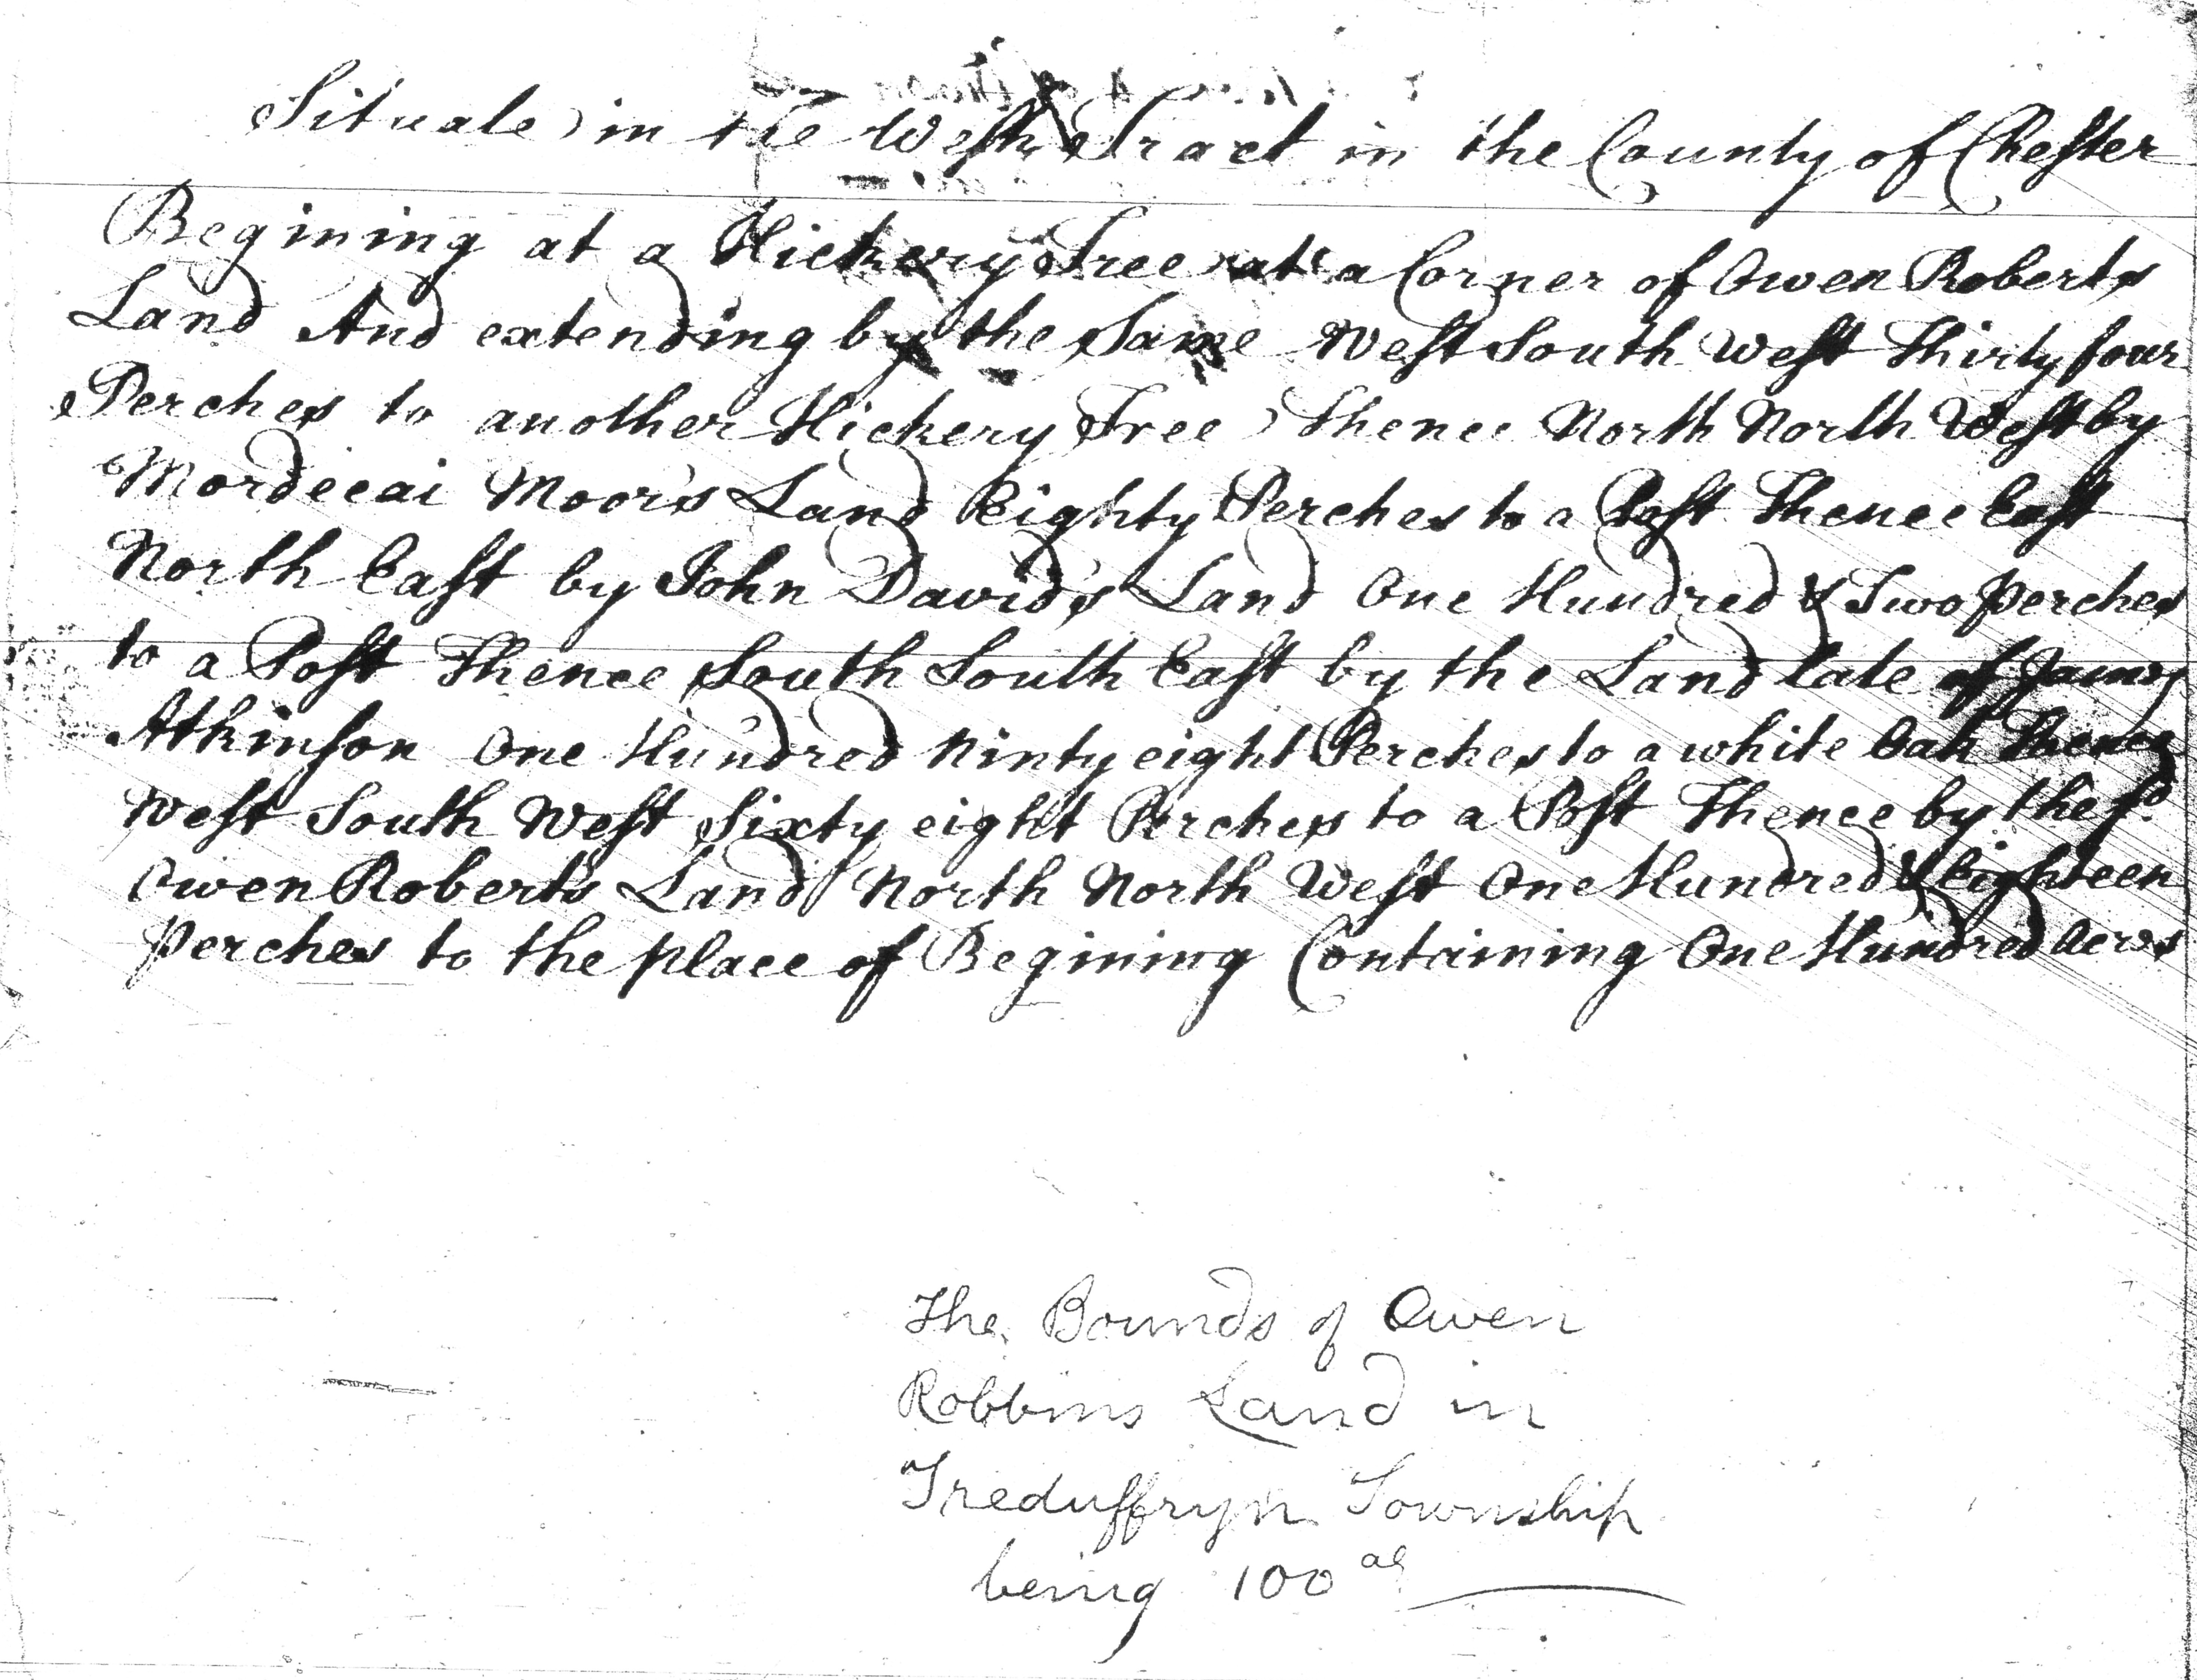 Situate in the Welsh Tract in the County of Chester
Begining at a Hickery Tree at a Corner of Owen Roberts
Land And extending by the Same West South West Thirty four
Perches to another Hickery Tree Thence North North West by
Mordecai Moor's Land Eighty Perches to a Post Thence East
North East by John David's Land One Hundred & Two perches
to a Post Thence South South East by the Land late of James
Atkinson One Hundred Ninty eight Perches to a white Oak Thence
West South West Sixty eight Perches to a Post Thence by the sd.
Owen Robert's Land North North West One Hundred & Eighteen
perches to the place of Begining Containing One Hundred Acres
The Bounds of Owen
Robbins Land in
Treduffryn Township
being 100 as